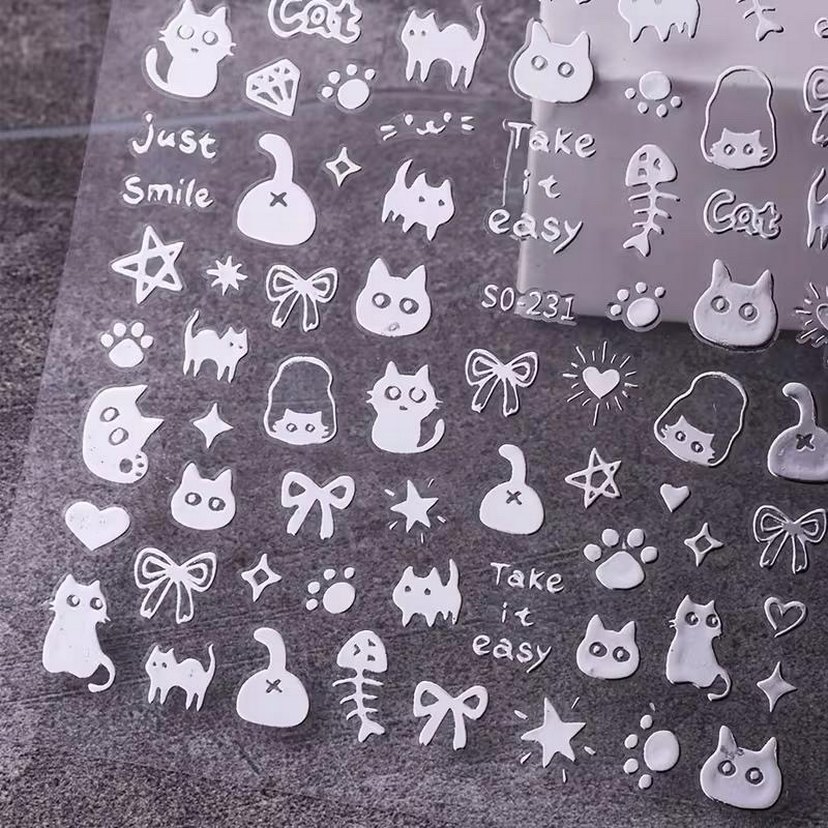 Cat
just
Smile
Take
it
easy
Cat
SO-231
Take
it
easy